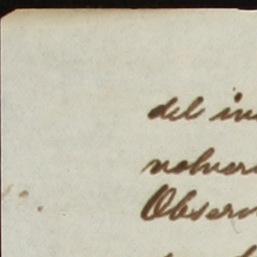 del in
volver
Observ